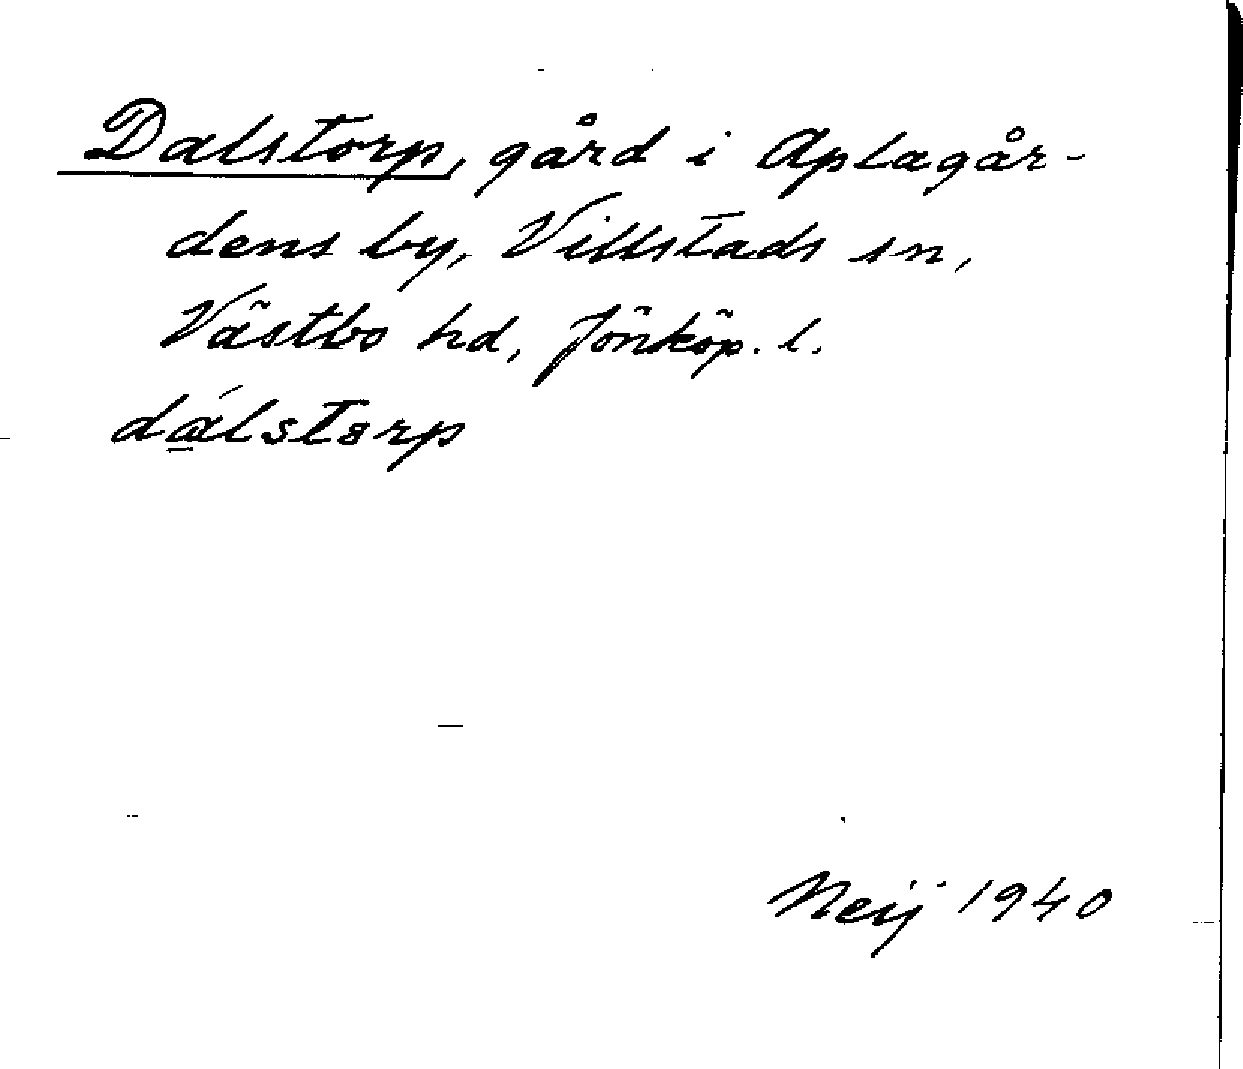 Dalstorp, gård i Aplagår-
dens by, Villstads sn,
Västbo hd, Jönköp. l.
dálstorp
Neij 1940